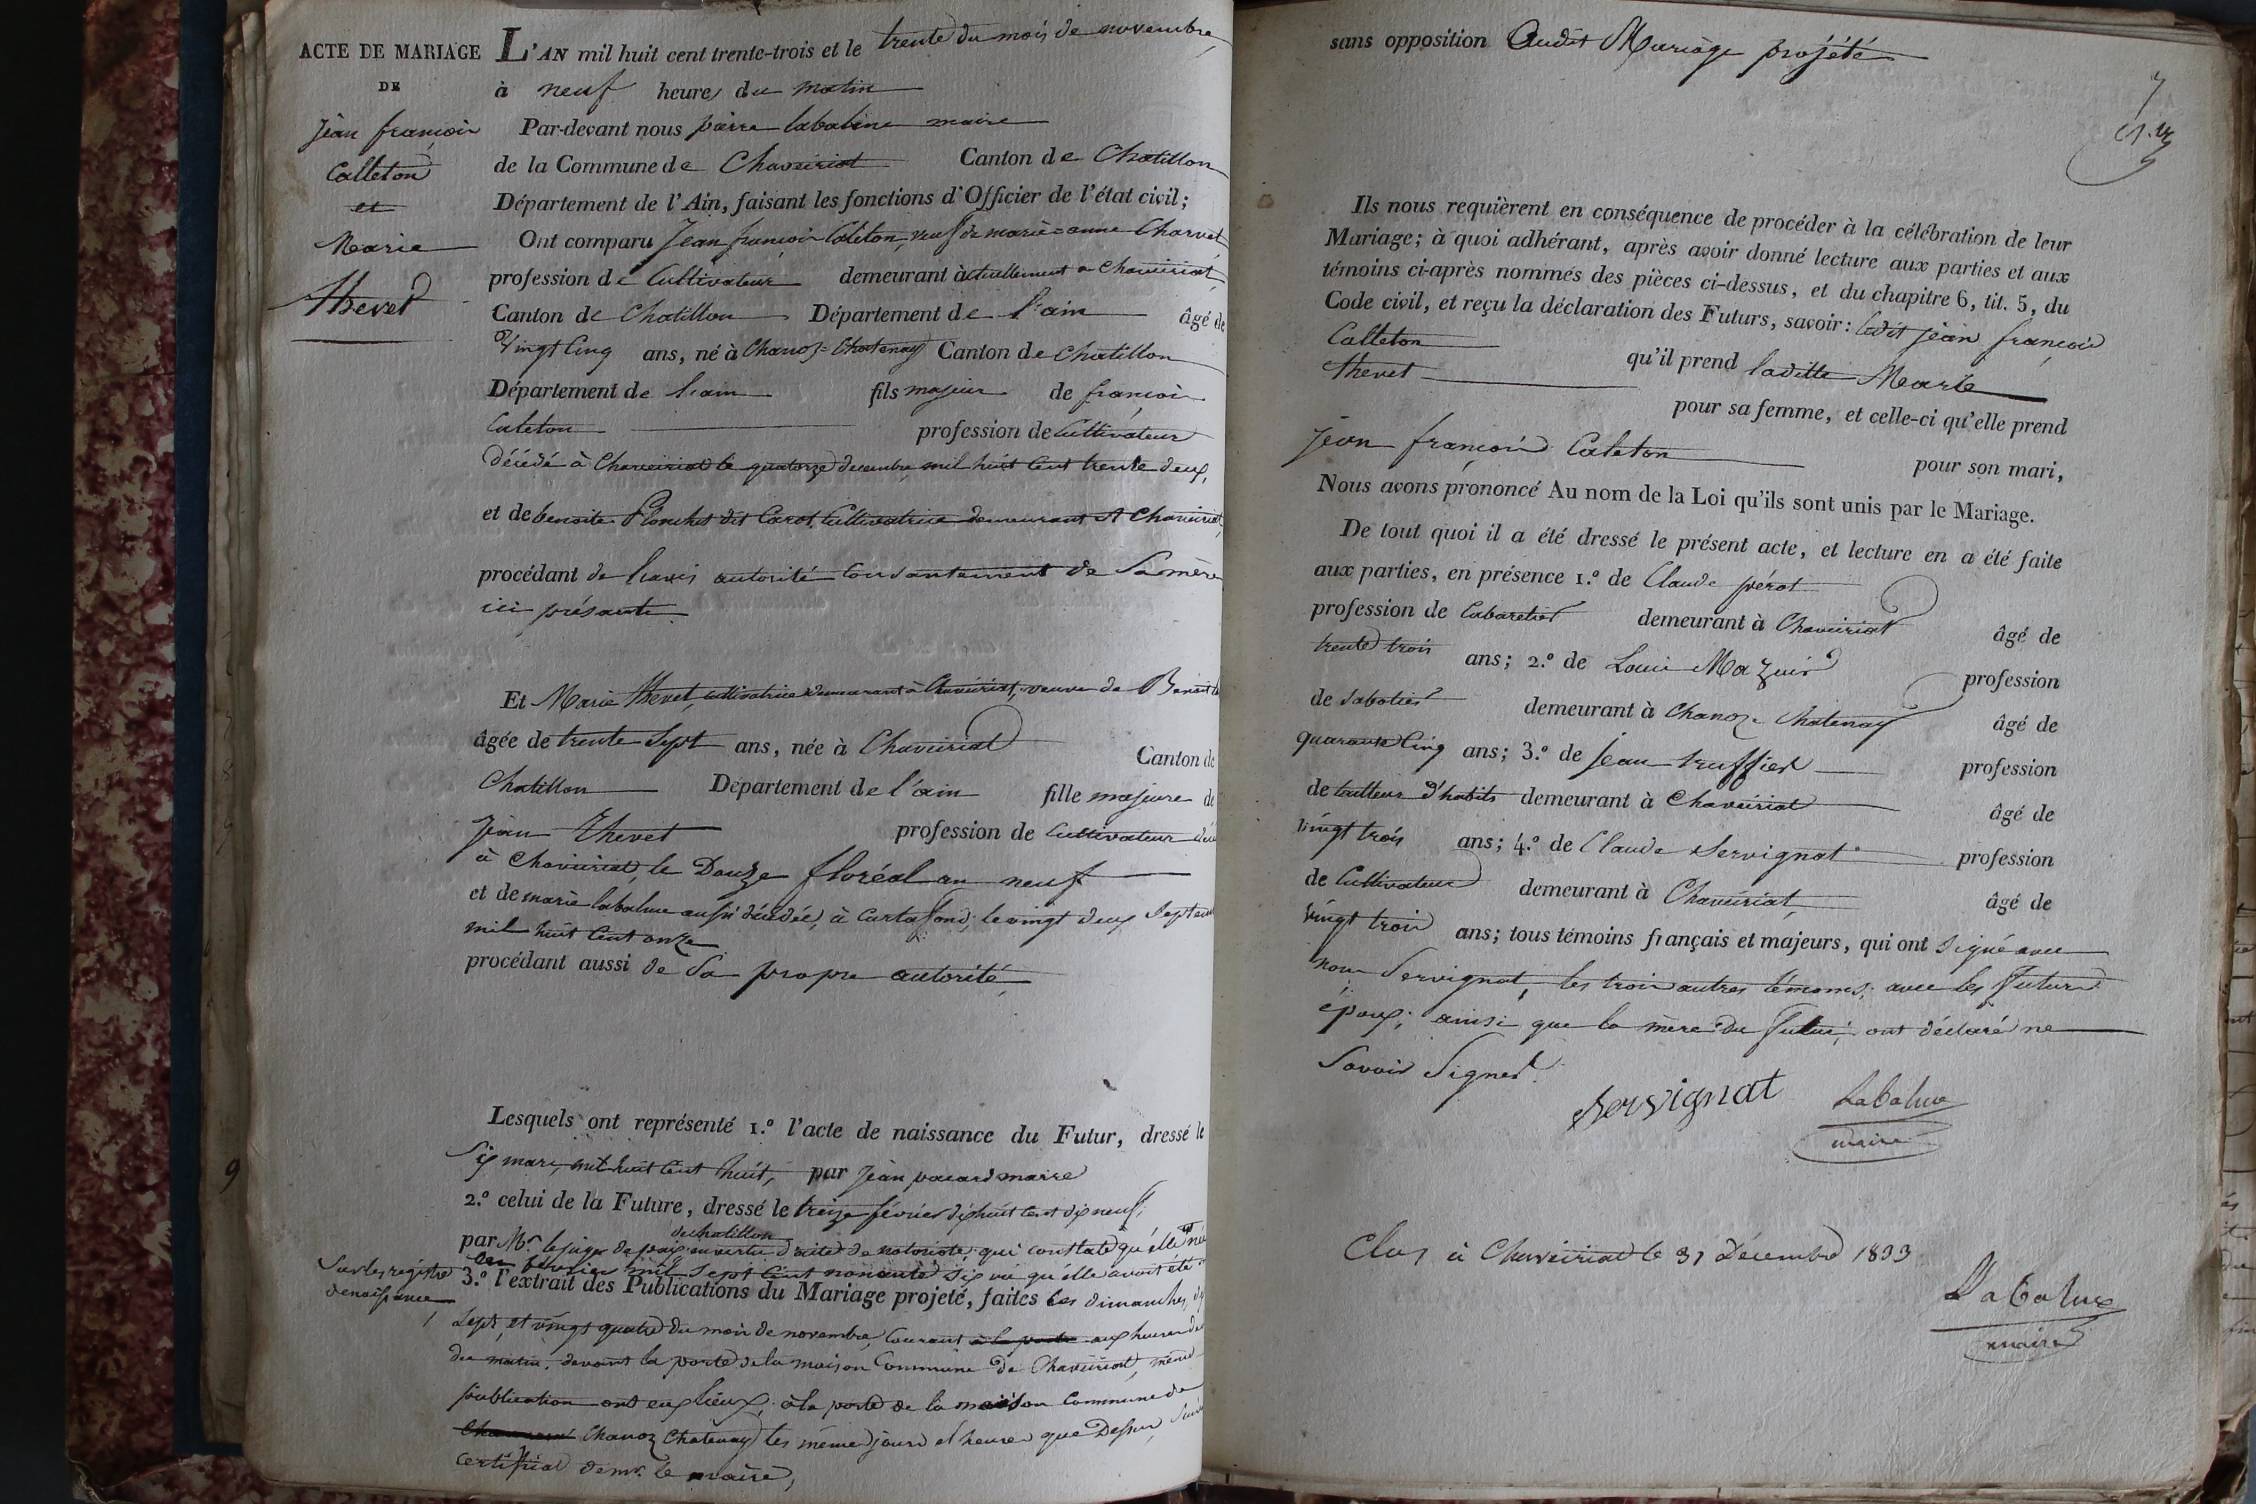 ACTE DE MARIAGE
DE
Jean françois
Calleton
et
Marie
Thevet
L'AN mil huit cent trente-trois et le trente du mois de novembre
à neuf heures du matin
Par-devant nous pierre labalme maire
de la Commune de Chaveiriat Canton de Chatillon
Département de l'Ain, faisant les fonctions d'Officier de l'état civil;
Ont comparu Jean françois Caleton, veuf de marie-anne Charvet
profession de Cultivateur demeurant actuellement a Chaveiriat,
Canton de Chatillon Département de l'ain âgé de
Vingt Cinq ans, né à Chanoz-Chatenay Canton de Chatillon
Département de l'ain fils majeur de françois
Caleton profession de Cultivateur
décédé à Chaveiriat le quatorze decembre mil huit Cent trente deux,
et de benoite Planchet dit Carot, Cultivatrice demeurant A Chaveiriat,
procédant de l'avis autorité Consantement de Sa mère
ici présante.
Et Marie Thevet, cultivatrice demeurant à Chaveiriat, veuve de Benoit
âgée de trente Sept ans, née à Chaveiriat Canton de
Chatillon Département de l'ain fille majeure de
Jean Thevet profession de Cultivateur
à Chaveiriat le Douze floréal an neuf
et de marie labalme aussi décédée, à Curtafond, le vingt deux Septem
mil huit Cent onze
procédant aussi de Sa propre autorité,
Lesquels ont représenté 1.º l'acte de naissance du Futur, dressé le
Six mars mil huit Cent huit, par Jean pacard maire
2.º celui de la Future, dressé le treize février dixhuit Cent dix neuf,
de chatillon
par Mr. le juge de paix en vertu d'acte de notoriété qui constate qu'elle
en février mil Sept Cent nonante Six vu qu'elle avoit été
Sur les registre
de naissance,
3.º l'extrait des Publications du Mariage projeté, faites Les dimanches, dix
Sept, et vingt quatre du mois de novembre, Courant à la porte aux heures de
du matin. devant la porte de la maison Commune de Chaveiriat, même
publication ont eux lieux, à la porte de la maison Commune de
Chanoz Chatenay les même jours et heures que Dessus,
Certificat de mr. le maire,
sans opposition Audit Mariage projété
Ils nous requièrent en conséquence de procéder à la célébration de leur
Mariage; à quoi adhérant, après avoir donné lecture aux parties et aux
témoins ci-après nommés des pièces ci-dessus, et du chapitre 6, tit. 5, du
Code civil, et reçu la déclaration des Futurs, savoir: ledit jean françois
Calleton qu'il prend laditte Marie
Thevet pour sa femme, et celle-ci qu'elle prend
Jean françois Caleton pour son mari,
Nous avons prononcé Au nom de la Loi qu'ils sont unis par le Mariage.
De tout quoi il a été dressé le présent acte, et lecture en a été faite
aux parties, en présence 1.º de Claude pérot
profession de Cabaretier demeurant à Chaveiriat âgé de
trente trois ans; 2.º de Louis Mazuir profession
de Sabotier demeurant à Chanoz-Chatenay âgé de
quarante Cinq ans; 3.º de Jean truffier profession
de tailleur d'habits demeurant à Chaveiriat âgé de
vingt trois ans; 4.º de Claude Servignat profession
de Cultivateur demeurant à Chaveiriat, âgé de
vingt trois ans; tous témoins français et majeurs, qui ont Signé avec
nous Servignat, les trois autres témoins, avec les futurs
époux, ainsi que la mère du futur, ont déclaré ne
Savoir Signer.
Servignat Labalme
maire
Clos à Chaveiriat le 31 Décembre 1833
Labalme
maire
9